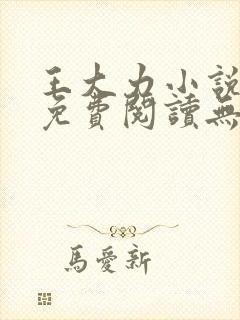 王大力小說
免費閱讀無
馬愛新